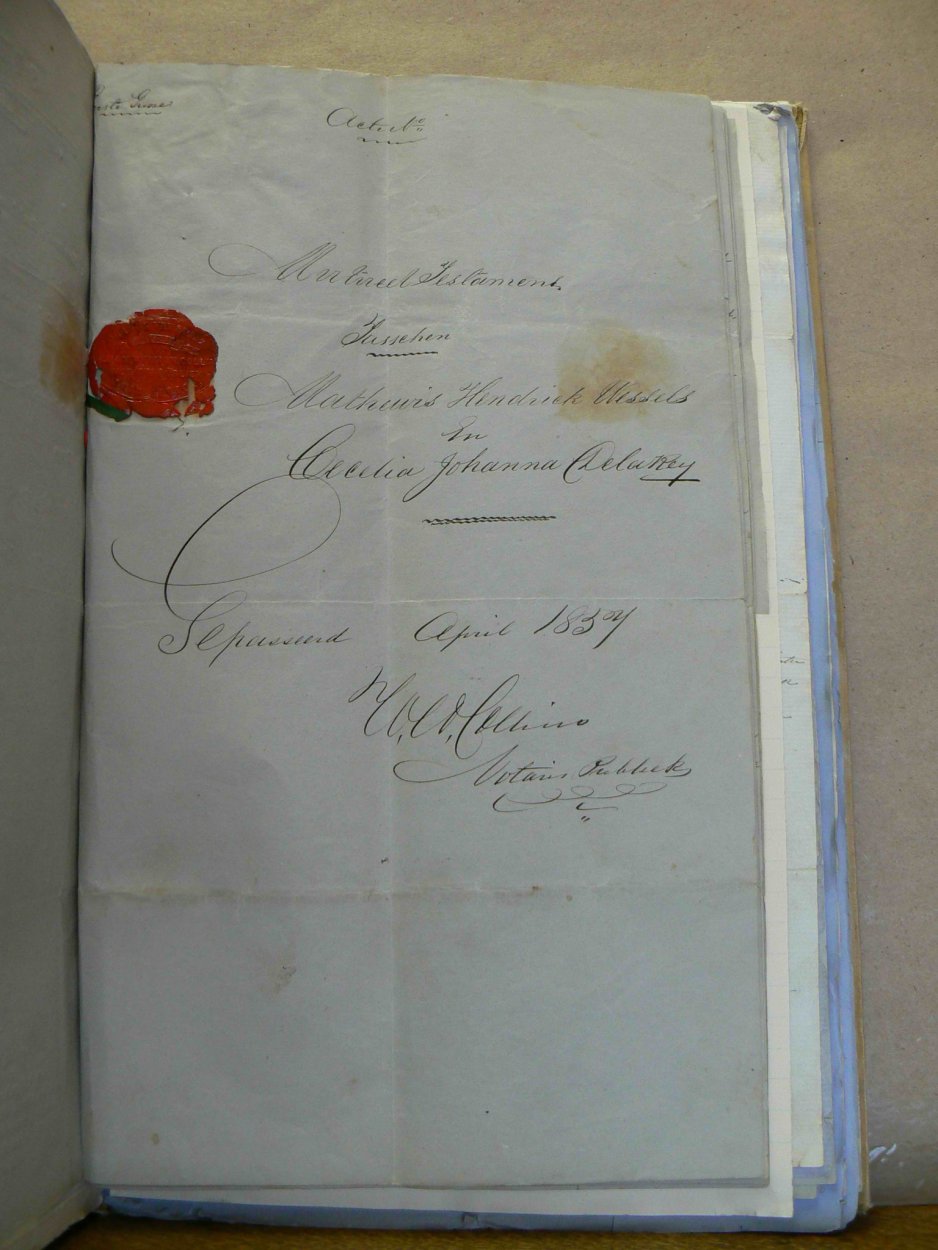 Acte No
Mutueel Testament
Tusschen
Mathewis Hendrick Wessels
En
Cecelia Johanna Delarey
Gepasseerd April 1857
Collins
Notaris Publiek